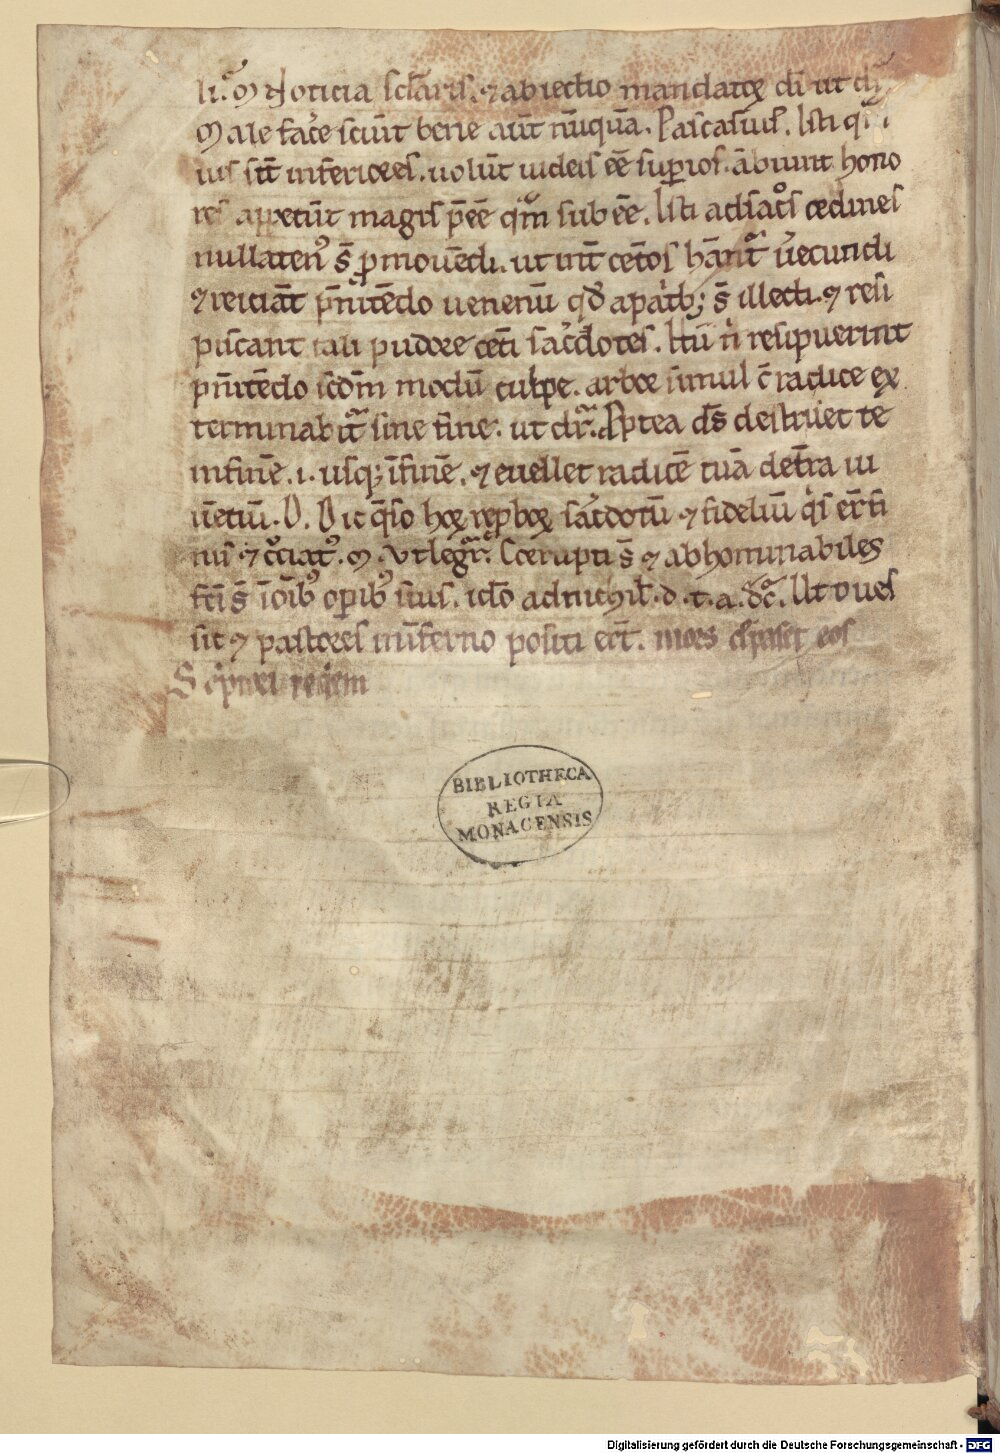 li. M Noticia sclaris. ⁊ abiectio mandatoꝝ di ut
Male face sciūt bene aūt nūquā. Pascasius. Isti
ius sūt inferiores. uolūt iudeis eē supiores. ābiunt hono
res appetūt magis p̄eē qm̄ sub eē. Isti ad sacͦs ordines
nullatenꝰ s̄ ꝓmouēdi. ut int̄ cet̄os hān̄t uecundi
⁊ reiciāt pn̄itēdo uenenū qd̄ a patib; s̄ illecti. ⁊ resi
piscant tali pudore cet̄i sac̄dotes. Itū n̄ resipuerint
pn̄itēdo scdm̄ modū culpe. arbor simul c̄ radice ex
terminabit̄ sine fine. ut dr̄. Ꝓptea ds̄ destruet te
infinē .i. usq; ī finē. ⁊ euellet radicē tuā de tr̄a ui
uētiū. D. Dic q̄so hoꝝ reꝓboꝝ sac̄dotū ⁊ fideliū qͥs er̄ fi
nis ⁊ cͦciatꝰ. M. Vt legit̄. Corrupti s̄ ⁊ abhominabiles
fc̄i s̄ ī oīb; opib; suis. idō ad nichil̄. d. t. a. Vt oues
sic ⁊ pastores in īferno positi er̄t. mors depascet eos
S regem
BIBLIOTHECA
REGIA
MONACENSIS
Digitalisierung gefördert durch die Deutsche Forschungsgemeinschaft - DFG